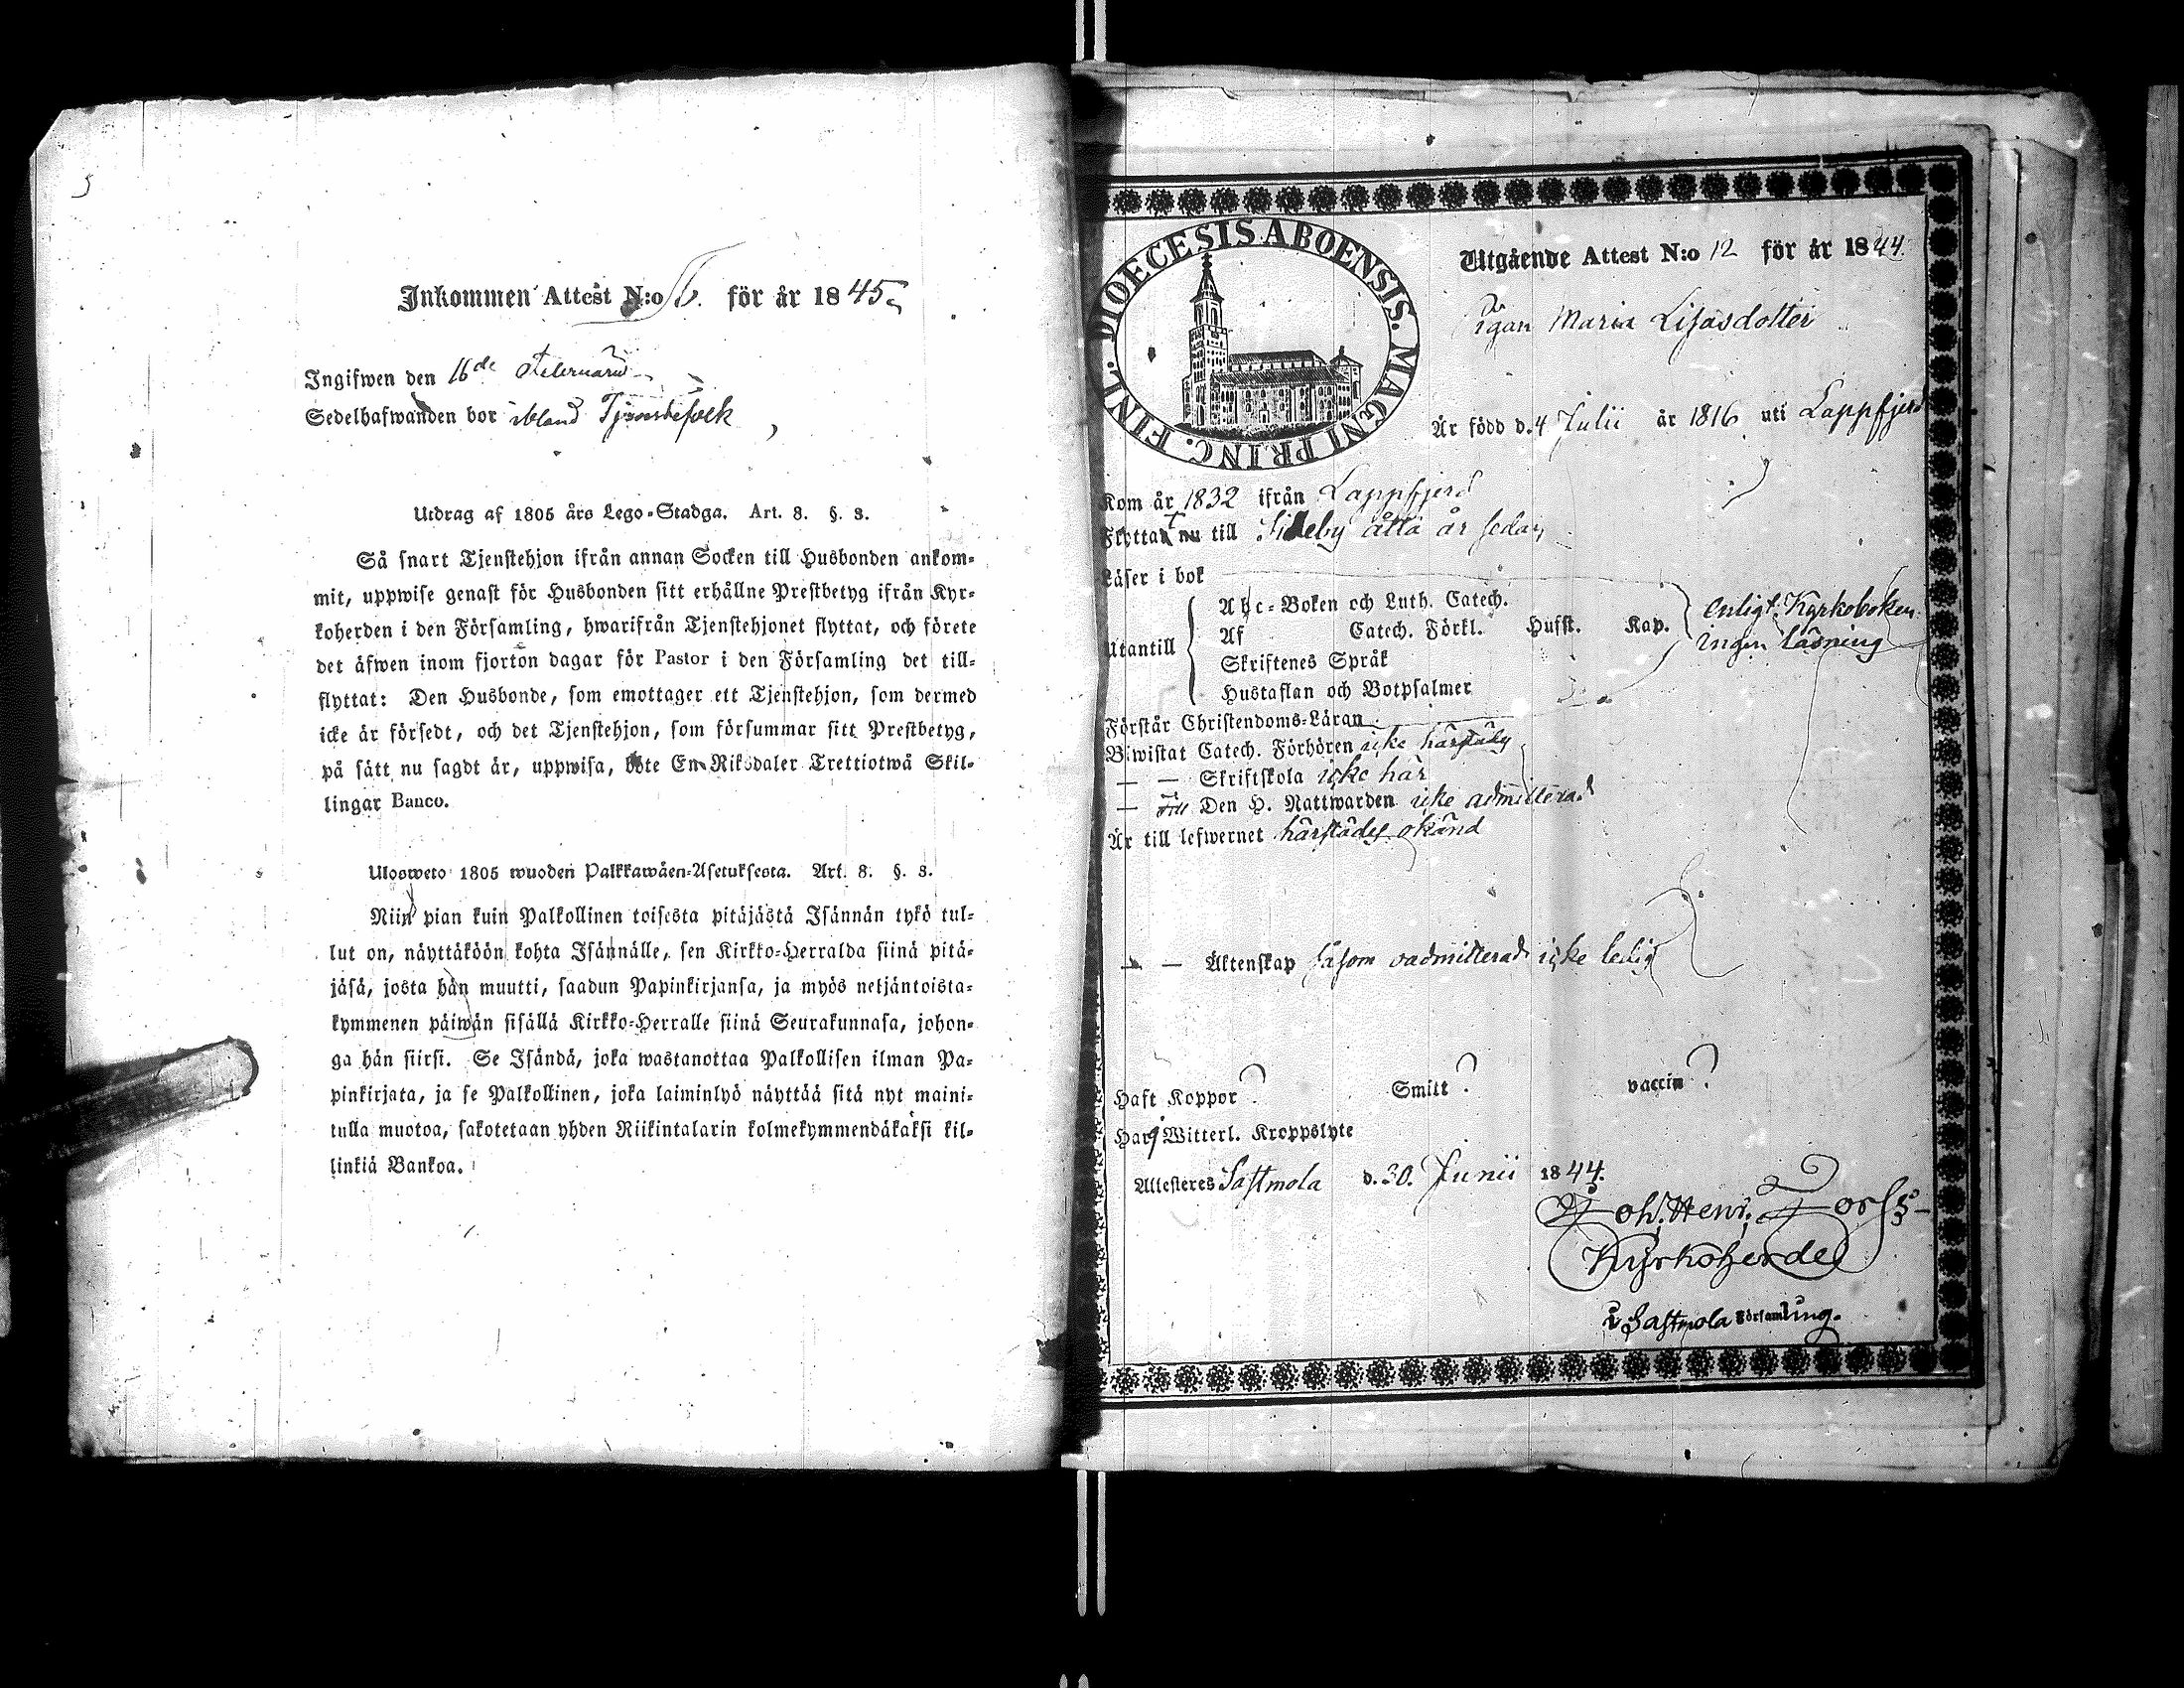 5
Inkommen Attest N:o 6. för år 1845
Ingifwen den 16de Februarii
Sedelhafwanden bor ibland Tjenstefolk
Utdrag af 1805 års Lego-Stadga. Art. 8. §. 3.
Så snart Tjenstehjon ifrån annan Socken till Husbonden ankom-
mit, uppwise genast för Husbonden sitt erhållne Prestbetyg ifrån Kyr-
koherden i den Församling, hwarifrån Tjenstehjonet flyttat, och förete
det äfwen inom fjorton dagar för Pastor i den Församling det till-
flyttat: Den Husbonde, som emottager ett Tjenstehjon, som dermed
icke är försedt, och det Tjenstehjon, som försummar sitt Prestbetyg,
på sätt nu sagdt är, uppwisa, böte En Riksdaler Trettiotwå Skil-
lingar Banco.
Ulosweto 1805 wuoden Palkkawäen-Asetuksesta. Art. 8. §. 3.
Niin pian kuin Palkollinen toisesta pitäjästä Isännän tykö tul-
lut on, näyttäköön kohta Isännälle, sen Kirkko-Herralda siinä pitä-
jäsä, josta hän muutti, saadun Papinkirjansa, ja myös neljäntoista-
kymmenen päiwän sisällä Kirkko-Herralle siinä Seurakunnasa, johon-
ga hän siirsi. Se Isändä, joka wastanottaa Palkollisen ilman Pa-
pinkirjata, ja se Palkollinen, joka laiminlyö näyttää sitä nyt maini-
tulla muotoa, sakotetaan yhden Riikintalarin kolmekymmendäkaksi kil-
linkiä Bankoa.
DIOECESIS ABOENSIS. MAGNI PRINC. FINL.
Utgående Attest N:o 12 för år 1844.
Pigan Maria Lisasdotter
Är född d. 4 Julii år 1816 uti Lappfjerd
Kom år 1832 ifrån Lappfjerd
Flyttat nu till Sideby åtta år sedan
Läser i bok
Utantill
Abc-Boken och Luth. Catech.
Af Catech. Förkl. Husst. Kap.
Skriftenes Språk
Hustaflan och Botpsalmer
enligt Kyrkoboken
ingen läsning
Förstår Christendoms-Läran
Biwistat Catech. Förhören icke härstädes
— — Skriftskola icke här
— till Den H. Nattwarden icke admitterad
Är till lefwernet härstädes okänd
— — Äktenskap såsom oadmitterad icke ledig
Haft Koppor? Smitt? vaccin?
Har ej Witterl. Kroppslyte
Attesteres Sastmola d. 30. Junii 1844.
Joh. Henr. Forss
Kyrkoherde
i Sastmola Församling.